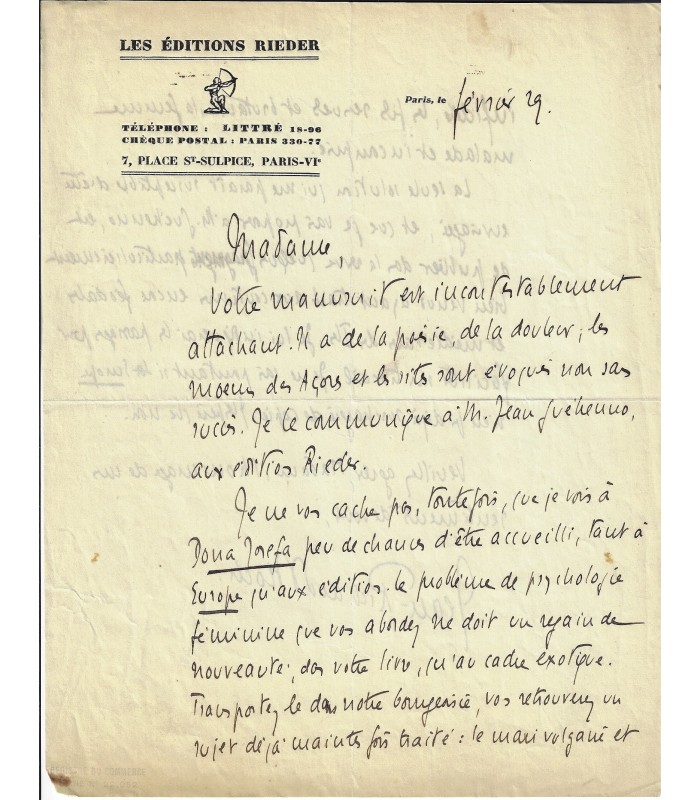 LES ÉDITIONS RIEDER
TÉLÉPHONE : LITTRÉ 18-96
CHÈQUE POSTAL : PARIS 330-77
7, PLACE ST-SULPICE, PARIS-VIe
Paris, le février 29.
Madame,
Votre manuscrit est incontestablement
attachant. Il a de la poésie, de la douleur ; les
moeurs des Açores et les sites sont évoqués non sans
succès. Je le communique à M. Jean Guéhenno,
aux éditions Rieder.
Je ne vous cache pas, toutefois, que je vois à
Dona Josefa peu de chances d'être accueilli, tant à
Europe qu'aux éditions. Le problème de psychologie
féminine que vous abordez ne doit un regain de
nouveauté, dans votre livre, qu'au cadre exotique.
Transportez le dans notre bourgeoisie, vous retrouverez un
sujet déjà maintes fois traité : le mari vulgaire et